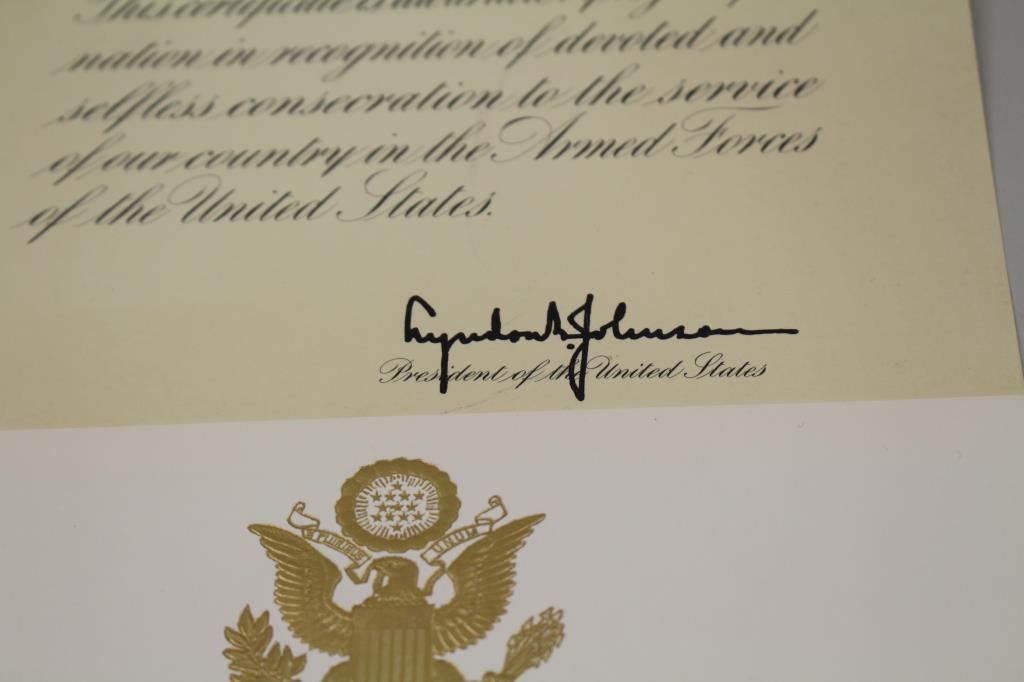 This certificate is
nation in recognition of devoted and
selfless consecration to the service
of our country in the Armed Forces
of the United States.
Lyndon B. Johnson
President of the United States
E PLURIBUS UNUM